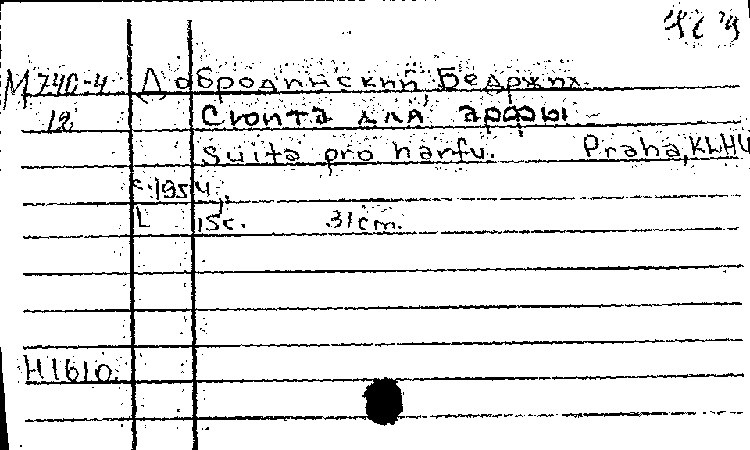 М 740-4 Добродинский, Бедржих.
12 Сюита для арфы
Suita pro harfu. Praha, KLHU
c. 1954.
L 15c. 31cm.
H1610.